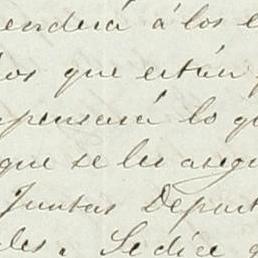 enderá á los e
los que están
pensará lo q
que se les asegu
Juntas Depart
les. Se dice q